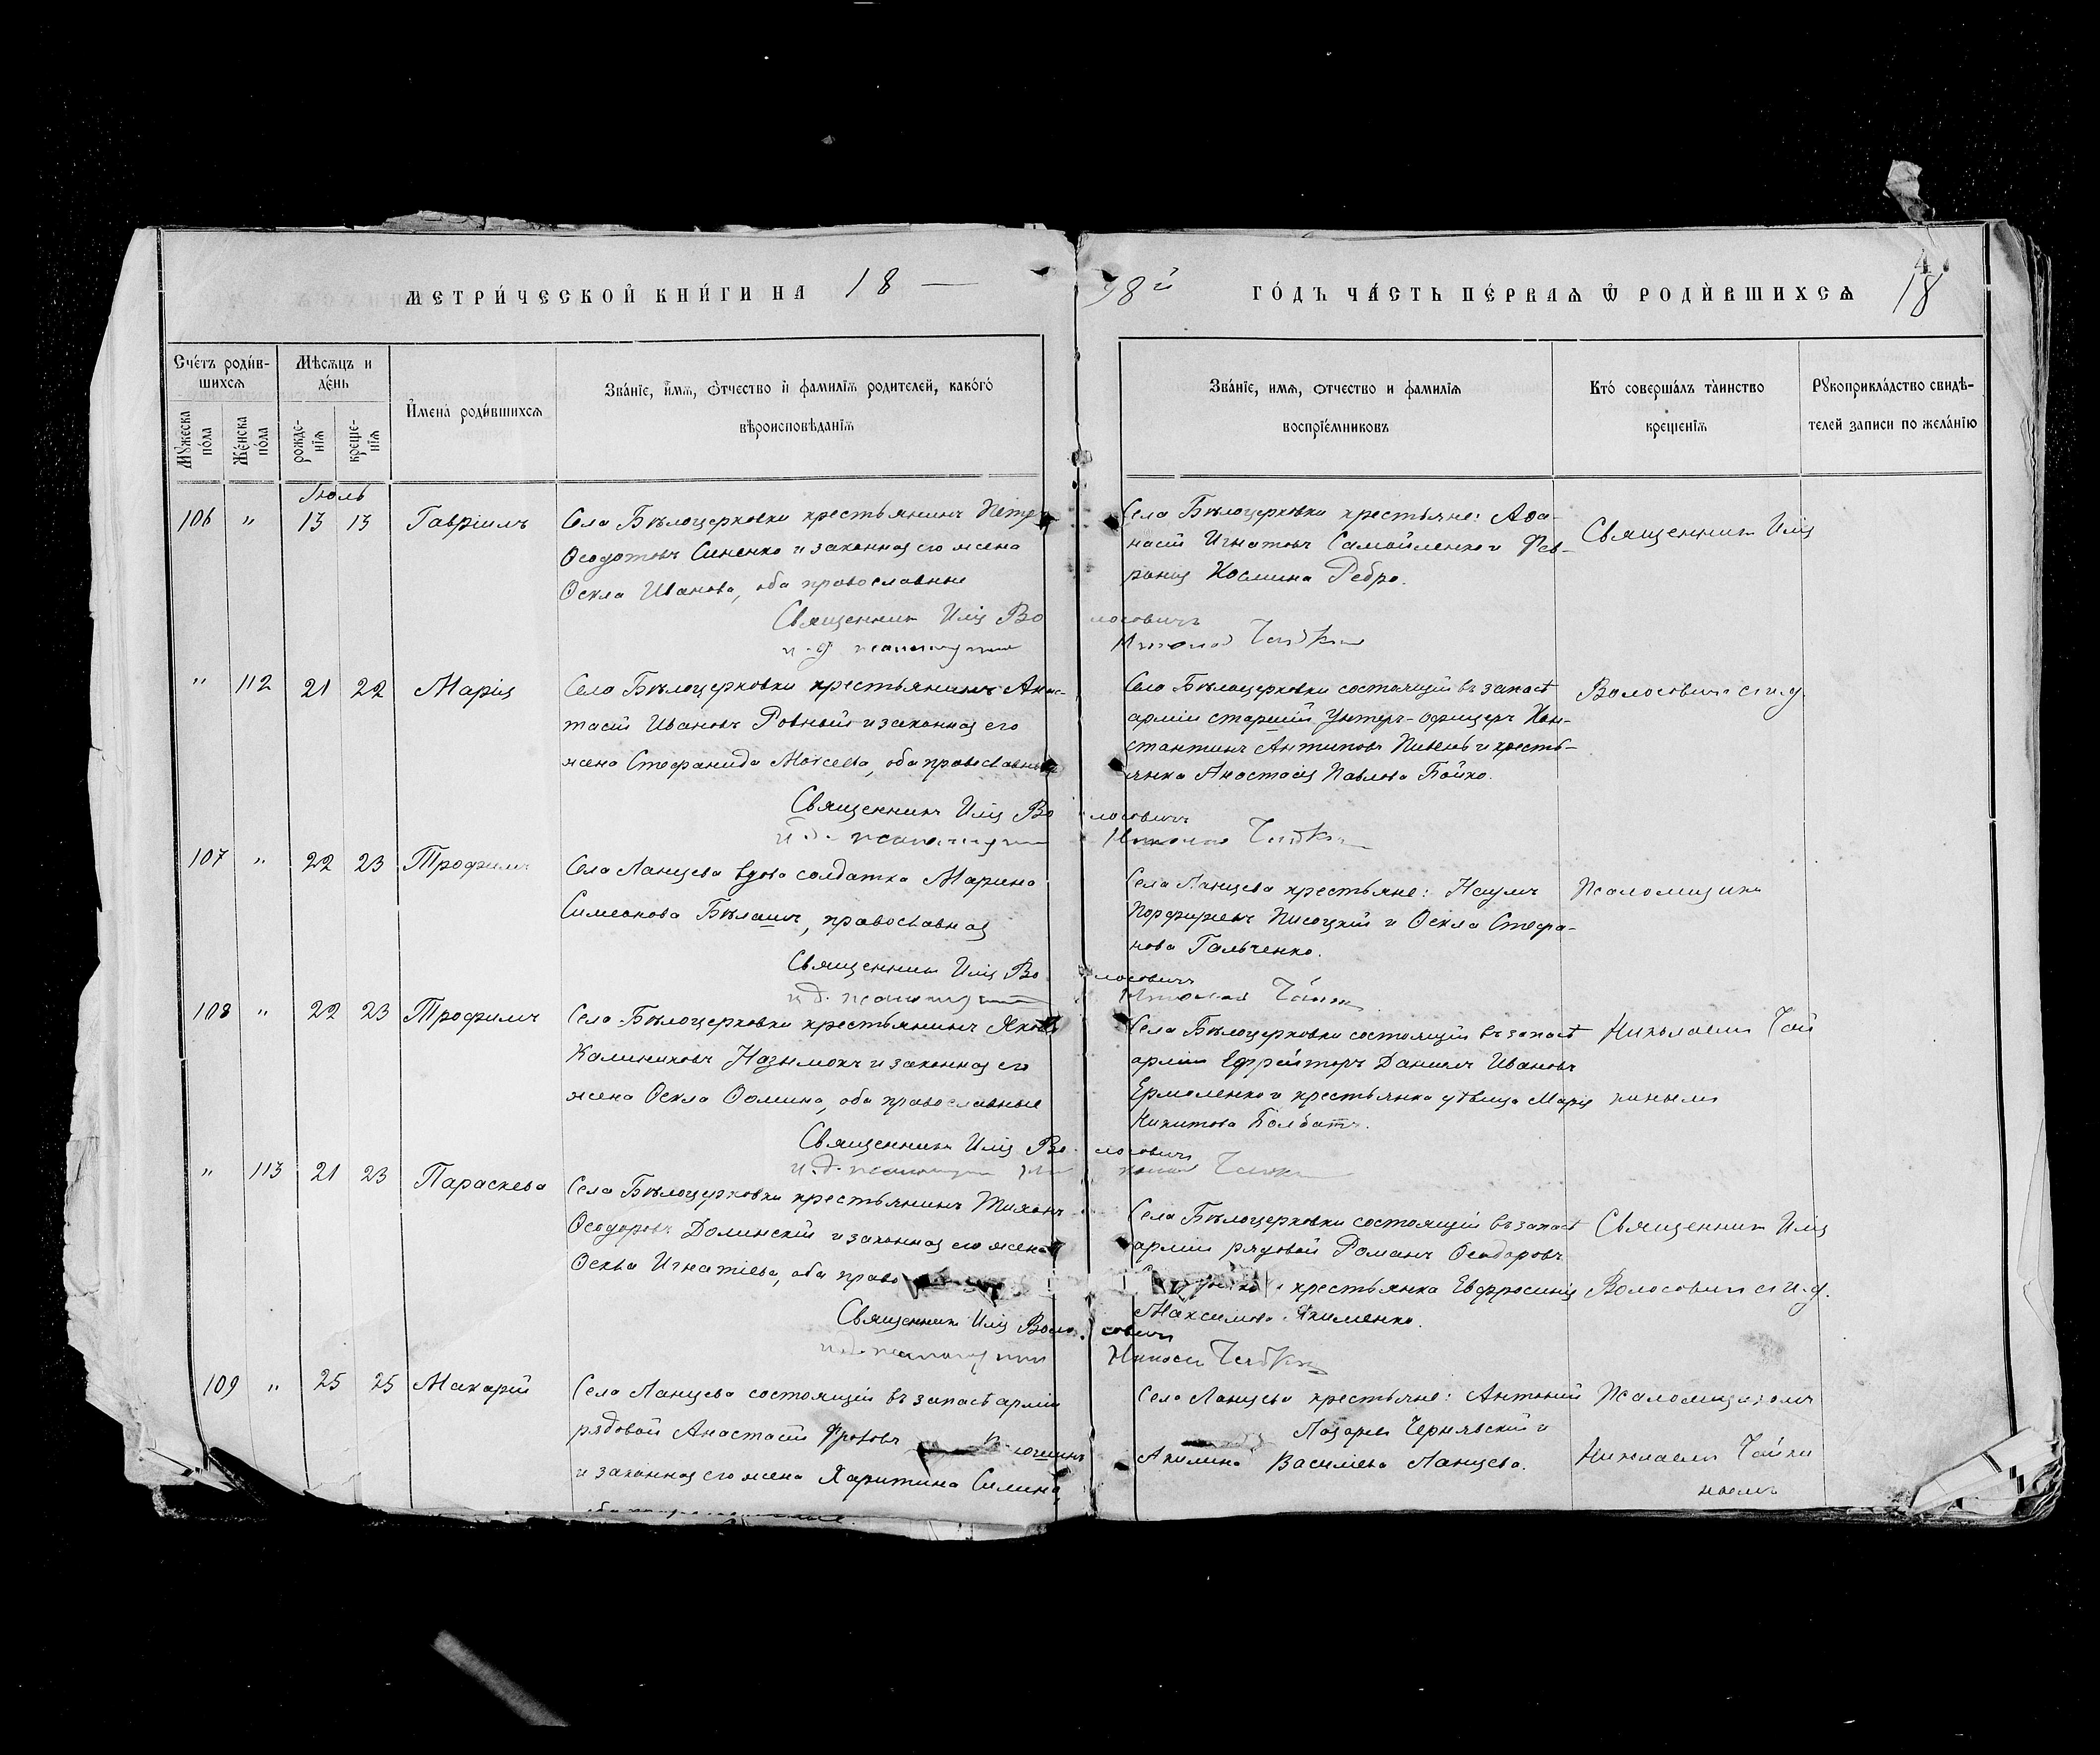 МЕТРИ́ЧЕСКОЙ КНИ́ГИ НА 18 — 98й ГО́ДЪ ЧА́СТЬ ПЕ́РВАѦ Ѿ РОДИ́ВШИХСѦ 18
Сче́тъ роди́в-
шихсѧ
Мꙋ́жеска по́ла
Же́нска по́ла
Мѣ́сѧцъ и
де́нь
рожде́-
нїѧ
креще́-
нїѧ
Имена̀ роди́вшихсѧ
Зва́нїе, и́мѧ, ѻ́тчество и̂ фами́лїѧ родителей, како́гѡ́
вѣроисповѣ́данїѧ
Зва́нїе, имѧ, ѻтчество и фамилїѧ
воспрїе́мниковъ
Кто́ соверша́лъ та́инство
креще́нїѧ
Рꙋкоприкла́дство свидѣ́-
телей записи по жела́нїю
Іюль
106 " 13 13 Гавріилъ
Села Бѣлоцерковки крестьянинъ Петръ
Ѳеодотовъ Синенко и законная его жена
Ѳекла Иванова, оба православные
Села Бѣлоцерковки крестьяне: Аѳа-
насій Игнатовъ Самойленко и Фев-
ронія Космина Ребро.
Священникъ Илія
Священникъ Илія Волосовичъ
и. д. псаломщика Николай
" 112 21 22 Марія
Села Бѣлоцерковки крестьянинъ Анас-
тасій Ивановъ Ровный и законная его
жена Стефанида Моисеева, оба православные
Села Бѣлоцерковки состоящій въ запасѣ
арміи старшій унтеръ-офицеръ Кон-
стантинъ Антиповъ Пивень и кресть-
янка Анастасія Павлова Бойко.
Волосовичъ съ и. д.
Священникъ Илія Волосовичъ
и. д. псаломщика Николай
107 " 22 23 Трофимъ
Села Ланцева вдова солдатка Марина
Симеонова Бѣлашъ, православная
Села Ланцева крестьяне: Наумъ
Порфирьевъ Писоцкій и Ѳекла Стефа-
нова Гальченко.
Псаломщика
Священникъ Илія Волосовичъ
и. д. псаломщика Николай
108 " 22 23 Трофимъ
Села Бѣлоцерковки крестьянинъ Яковъ
Калиниковъ Назымокъ и законная его
жена Ѳекла Ѳомина, оба православные
Села Бѣлоцерковки состоящій въ запасѣ
арміи ефрейторъ Даніилъ Ивановъ
Ермоленко и крестьянка дѣвица Марія
Никитова Болбатъ.
Николаемъ Чай
кинымъ
Священникъ Илія Волосовичъ
и. д. псаломщика
" 113 21 23 Параскева
Села Бѣлоцерковки крестьянинъ Тихонъ
Ѳеодоровъ Долинскій и законная его жена
Ѳекла Игнатіева, оба право
Села Бѣлоцерковки состоящій въ запасѣ
арміи рядовой Романъ Ѳеодоровъ
и крестьянка Евфросинія
Максимова Якименко.
Священникъ Илія
Волосовичъ съ и. д.
Священникъ Илія Волосовичъ
и. д. псаломщика Николай
109 " 25 25 Макарій
Села Ланцева состоящій въ запасѣ арміи
рядовой Анастасій Фроловъ
и законная его жена Харитина Силина,
Села Ланцева крестьяне: Антоній
Лазаревъ Чернявскій и
Акилина Василіева Ланцева.
Псаломщикомъ
Николаемъ Чайки
нымъ